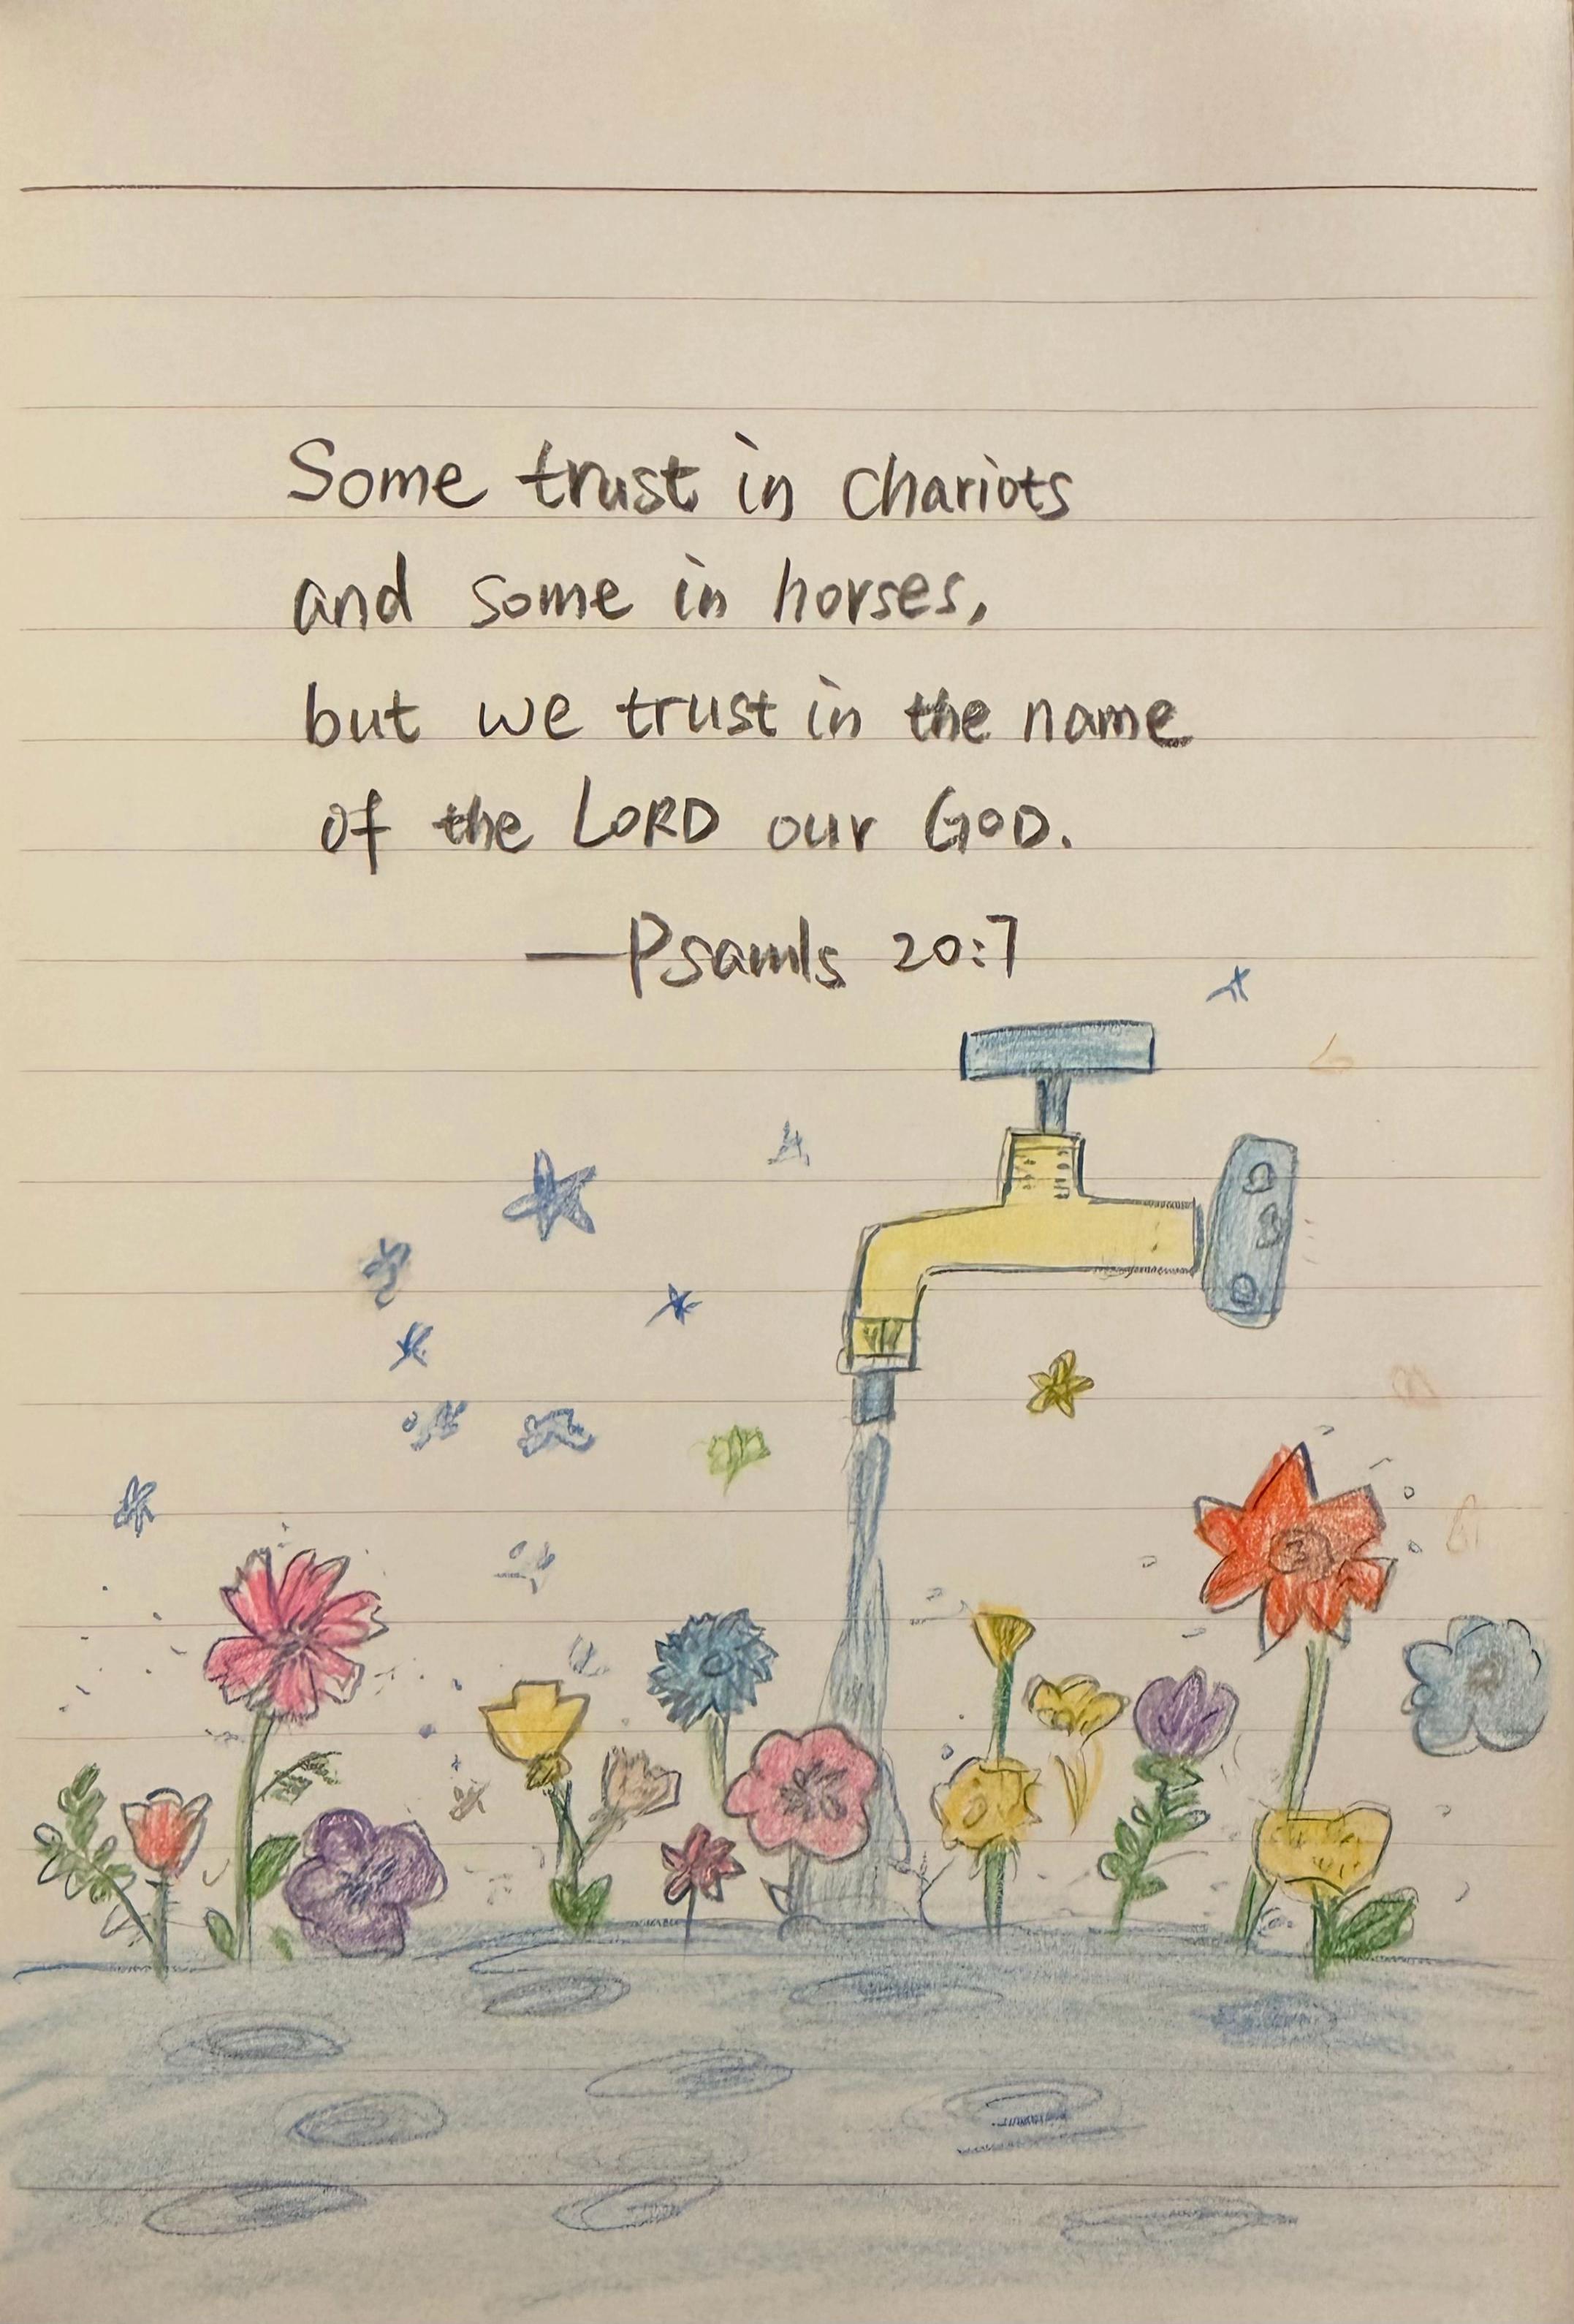 Some trust in chariots
and some in horses,
but we trust in the name
of the LORD our GOD.
—Psamls 20:7